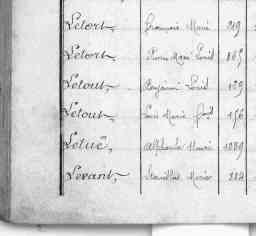 Letort, François Marie 219
Letort, Pierre Marie Louis
Letout, Benjamin Louis 129
Letout, Louis Marie 156
Letuê, Alphonse Henri 1089
Levant, Marie 224